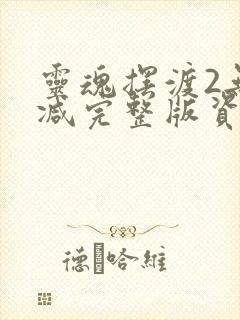 靈魂擺渡2無
減完整版資
德 哈維